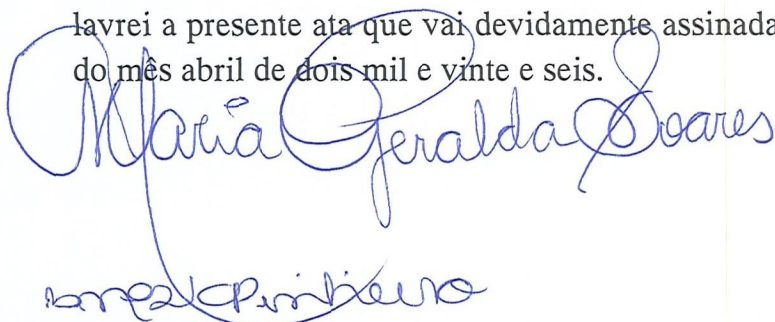 lavrei a presente ata que vai devidamente assinada
do mês abril de dois mil e vinte e seis.
Maria Geralda Soares